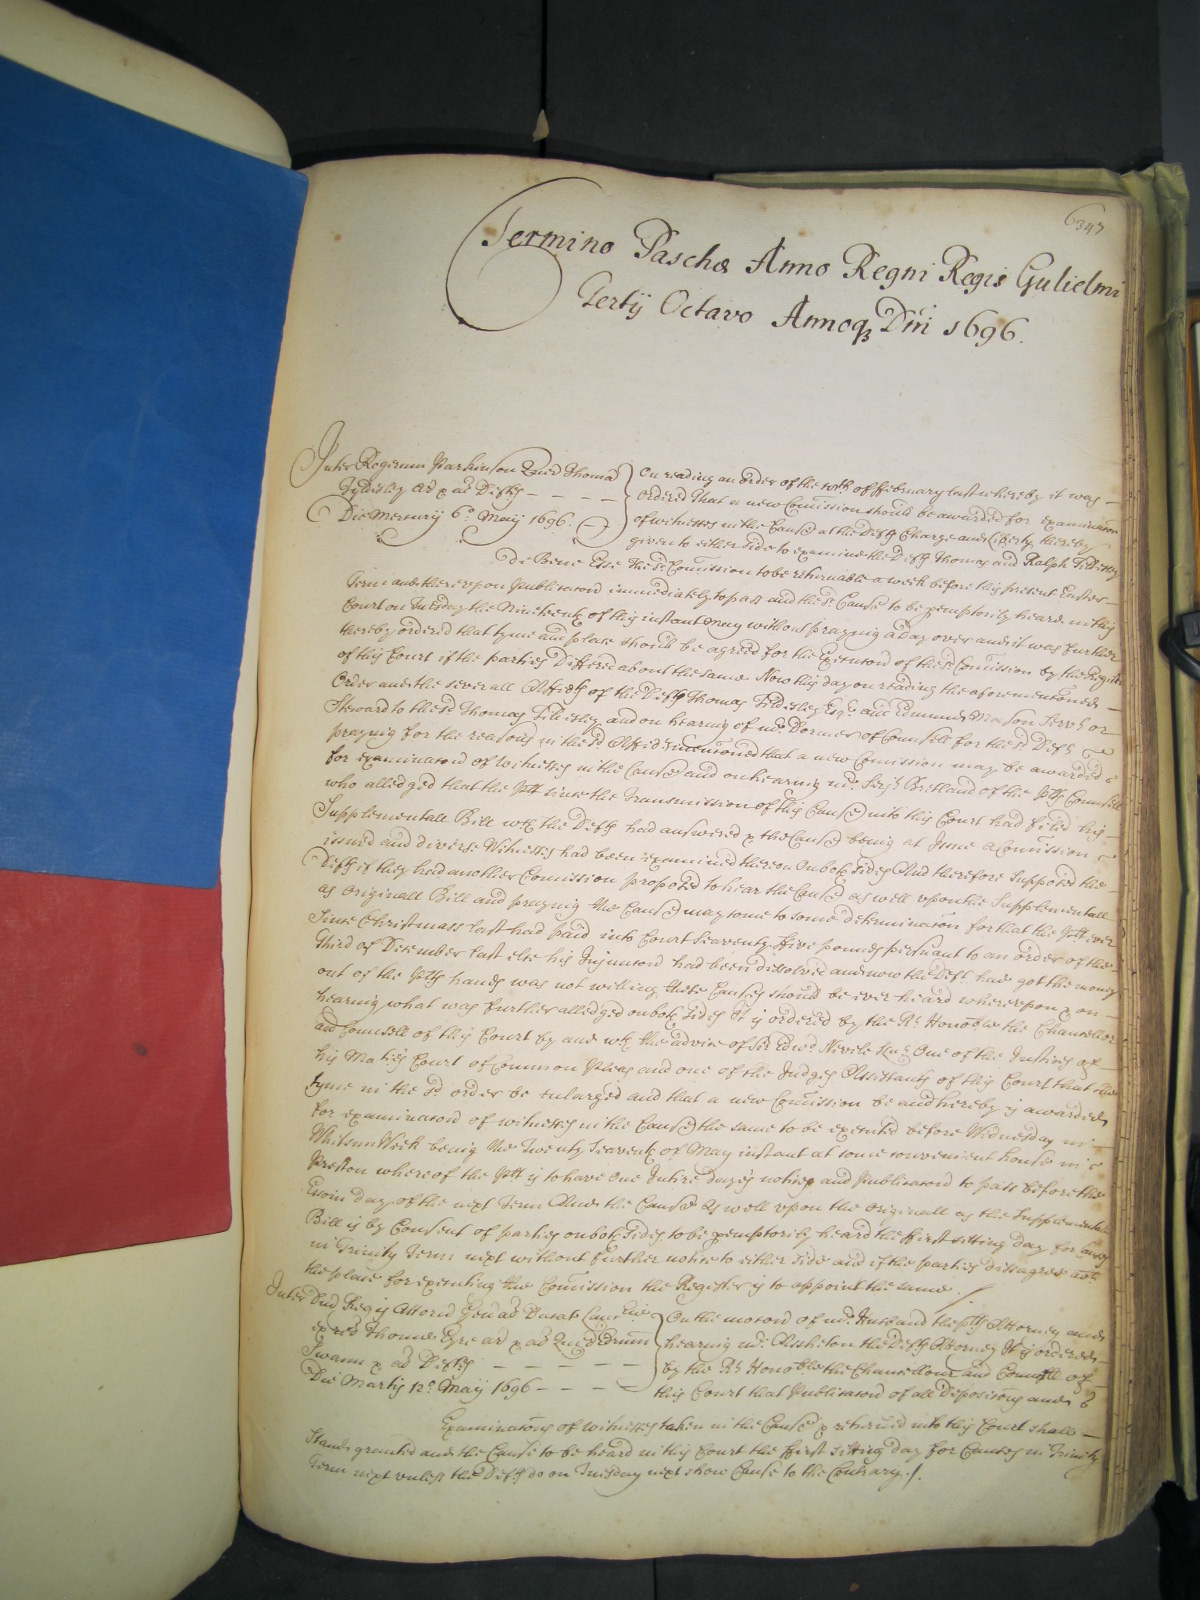 6347
Termino Paschæ Anno Regni Regis Gulielmi
Tertij Octavo Annoq Dm̄i 1696.
Inter Rogerum Parkinson Quer Thomā
Tyldesley Ar & at Defts
Die Mercurij 6o. Maij 1696.
On reading an order of the 10th. of February last whereby it was
Ordered That a new Com̄ission should be awarded for Examinac̄on
of witnesses in the Cause at the Defts Charge and Liberty thereby
given to either side to examine the Defts Thomas and Ralph Tildesley
de Bene Esse the sd. Com̄ission to be returnable a week before this present Easter
Term and thereupon Publicac̄on immediately to pass and the sd. Cause to be p̱emptorily heard in this
Court on Tuesday the Nineteenth of this instant May without praying a day over and it was further
thereby ordered that tyme and place should be agreed for the Execuc̄on of the sd Com̄ission by the Register
of this Court if the parties Differed about the same Now this day on reading the aforementioned
Order and the severall Affidts of the Defts Thomas Tildesley Esqr. and Edmund Mason Servt or
Steward to the sd Thomas Tildesley and on hearing of mr. Dormer of Counsell for the sd Defts
praying for the reasons in the sd Affidts menc̄oned that a new Com̄ission may be awarded
for examinac̄on of witnesses in the Cause and on hearing mr. Serjt Bretland of the Plts Counsell
who alledged that the Plt since the transmission of this Cause into this Court had filed his
Supplementall Bill wch the Defts had answered & the Cause being at Issue a Com̄ission
issued and diverse Witnesses had been examined thereon on both sides And therefore supposed the
Defts if they had another Com̄ission proposed to hear the Cause as well upon the Supplementall
as Originall Bill and praying the Cause may come to some determinac̄on for that the Plt ever
since Christmass last had paid into Court Seaventy ffive pounds pursuant to an order of the
third of December last else his Injuncc̄on had been dissolved and now the Deft. had got the money
out of the Plts hands was not willing these Causes should be ever heard whereupon & on
hearing what was further alledged on both sides It is ordered by the Rt Honoble the Chancellor
and Counsell of this Court by and wth the advice of Sr Edwd. Nevile Knt. One of the Justices of
his Maties Court of Com̄on Pleas and one of the Judges Assistants of this Court that the
tyme in the sd order be enlarged and that a new Com̄ission be and hereby is awarded
for examinac̄on of witnesses in the Cause the same to be executed before Wednesday in
Whitsun Week being the Twenty Seaventh of May instant at some convenient house in
Preston whereof the Plt is to have One Intire days notice and Publicac̄on to pass before the
Essoin day of the next Term And the Cause as well upon the Originall as the Supplementall
Bill is by Consent of parties on both sides to be p̱emptorily heard the ffirst sitting day for Causes
in Trinity Term next without further notice to either side and if the parties disagree at
the place for executing the Com̄ission the Register is to appoint the same
Inter Dn̄i Regis Attorn̄ Gen̄al Ducat̄ Lanc̄
ex rel Thomæ Eyre ar & at Quer Edrum
Swann & at Defts
Die Martis 12o. Maij 1696
On the moc̄on of mr. Husband the plts Attorney and
hearing mr. Assheton the Defts Attorney It is ordered
by the Rt Honoble the Chancellour and Counsell of
this Court that Publicac̄on of all Deposic̄ons and
Examinac̄ons of witnesses taken in the Cause & returned into this Court shall
Stand granted and the Cause to be heard in this Court the ffirst sitting day for Causes in Trinity
Term next unless the Defts do on Tuesday next show Cause to the Contrary.